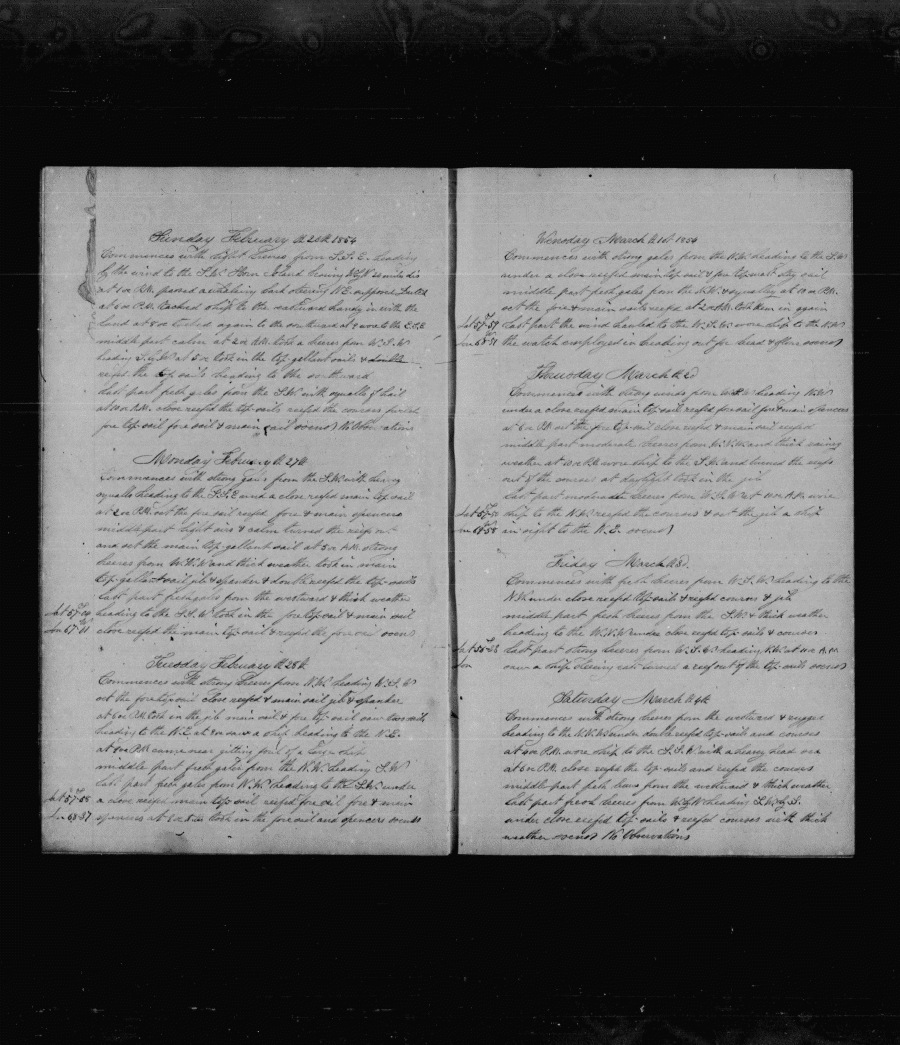 Sunday February th 26th 1854
Commences with light breses from S.S.E. heading
of the wind to the S.W. Horn Island bearing W by S 20 miles dis
at 1 oc P.M. passed a whaling bark steering N.E.
at 6 oc P.M. tacked ship to the eastward handy in with the
land at 8 oc tacked again to the southward
middle part calm at 2 oc A.M. took a brees from W.S.W
heading S. took in the top-gallant sails & double
reeft the top sails heading to the southward
last part fresh gales from the S.W. with squalls of hail
at 10 oc A.M. close reefd the top-sails reefd the courses furled
fore top-sail fore sail & main sail soends No Observations
Monday February th 27th
Commences with strong gales from the S.W. with heavy
squalls heading to the S.S.E under a close reefd main top sail
at 2 oc P.M. set the fore sail reefd fore & main spencers
middle part light airs & calm turned the reefs out
and set the main top gallant sail at 5 oc A.M. strong
breses from W.N.W and thick weather took in main
top-gallant sail jib & spanker & double reefd the top-sails
last part fresh gales from the westward & thick weather
Lat 57-04 heading to the S.S.W took in the fore top sail & main sail
Lon 67-11 close reefd the main top sail & reefd the fore sail soends
Tuesday February th 28th
Commences with strong breses from N.W. heading W.S.W
set the fore top sail close reefd & main sail jib & spanker
at 6 oc P.M. took in the jib main sail & fore top-sail saw two sails
heading to the N.E. at 7 oc saw a ship heading to the N.E.
at P.M. came near gitting foul of a large ship
middle part fresh gales from the N.W. heading S.W
last part fresh gales from N.W. heading to the S.W. under
Lat 57-55 a close reefd main top-sail reefd fore sail fore & main
Lon 68-37 spencers at 8 am took in the fore sail and spencers soends
Wensday March th 1st 1854
Commences with strong gales from the N.W. heading to the S.W
under a close reefd main top sail & fore top mast stay sail
middle part fresh gales from the N.W. & squally at 12 oc P.M.
set the fore & main sails reefd at 2 oc A.M. took them in again
Lat 57-57 last part the wind hauled to the W.S.W. wore ship to the N.W
Lon 68-51 the watch employed in heading out for bead & flour soends
Thursday March th 2d
Commences with strong winds from W.S.W heading N.W
under a close reefd main top-sail reefd for sail for & main spencers
at 6 oc P.M set the fore top-sail close reefd & main sail reefd
middle part moderate breses from W.N.W and thick rainy
weather at 10 oc P.M. wore ship to the S.W. and turned the reefs
out of the courses at daylight took in the jib
last part moderate breses from W.S.W at 11 oc A.M. wore
Lat 57-50 ship to the N.W. reefd the courses & set the jib a ship
Lon 68-58 in sight to the N.E. soends
Friday March th 3d
Commences with fresh breses from W.S.W. heading to the
N.W. under close reefd top-sails & reefd courses & jib
middle part fresh breses from the S.W. & thick weather
heading to the W.N.W under close reefd top-sails & courses
Lat 56-38 last part strong breses from W.S.W. heading N.W. at 11 oc A.M.
Lon saw a ship steering east turned a reef out of the top sails soends
Saturday March th 4th
Commences with strong breses from the westward & rugged
heading to the N.N.W under double reefd top-sails and courses
at 4 oc P.M. wore ship to the S.S.W with a heavy head sea
at 6 oc P.M. close reefd the top-sails and reefd the courses
middle part fresh breses from the westward & thick weather
last part fresh breses from W by N heading S.W. by S.
under close reefd top-sails & reefd courses with thick
weather soends No Observations